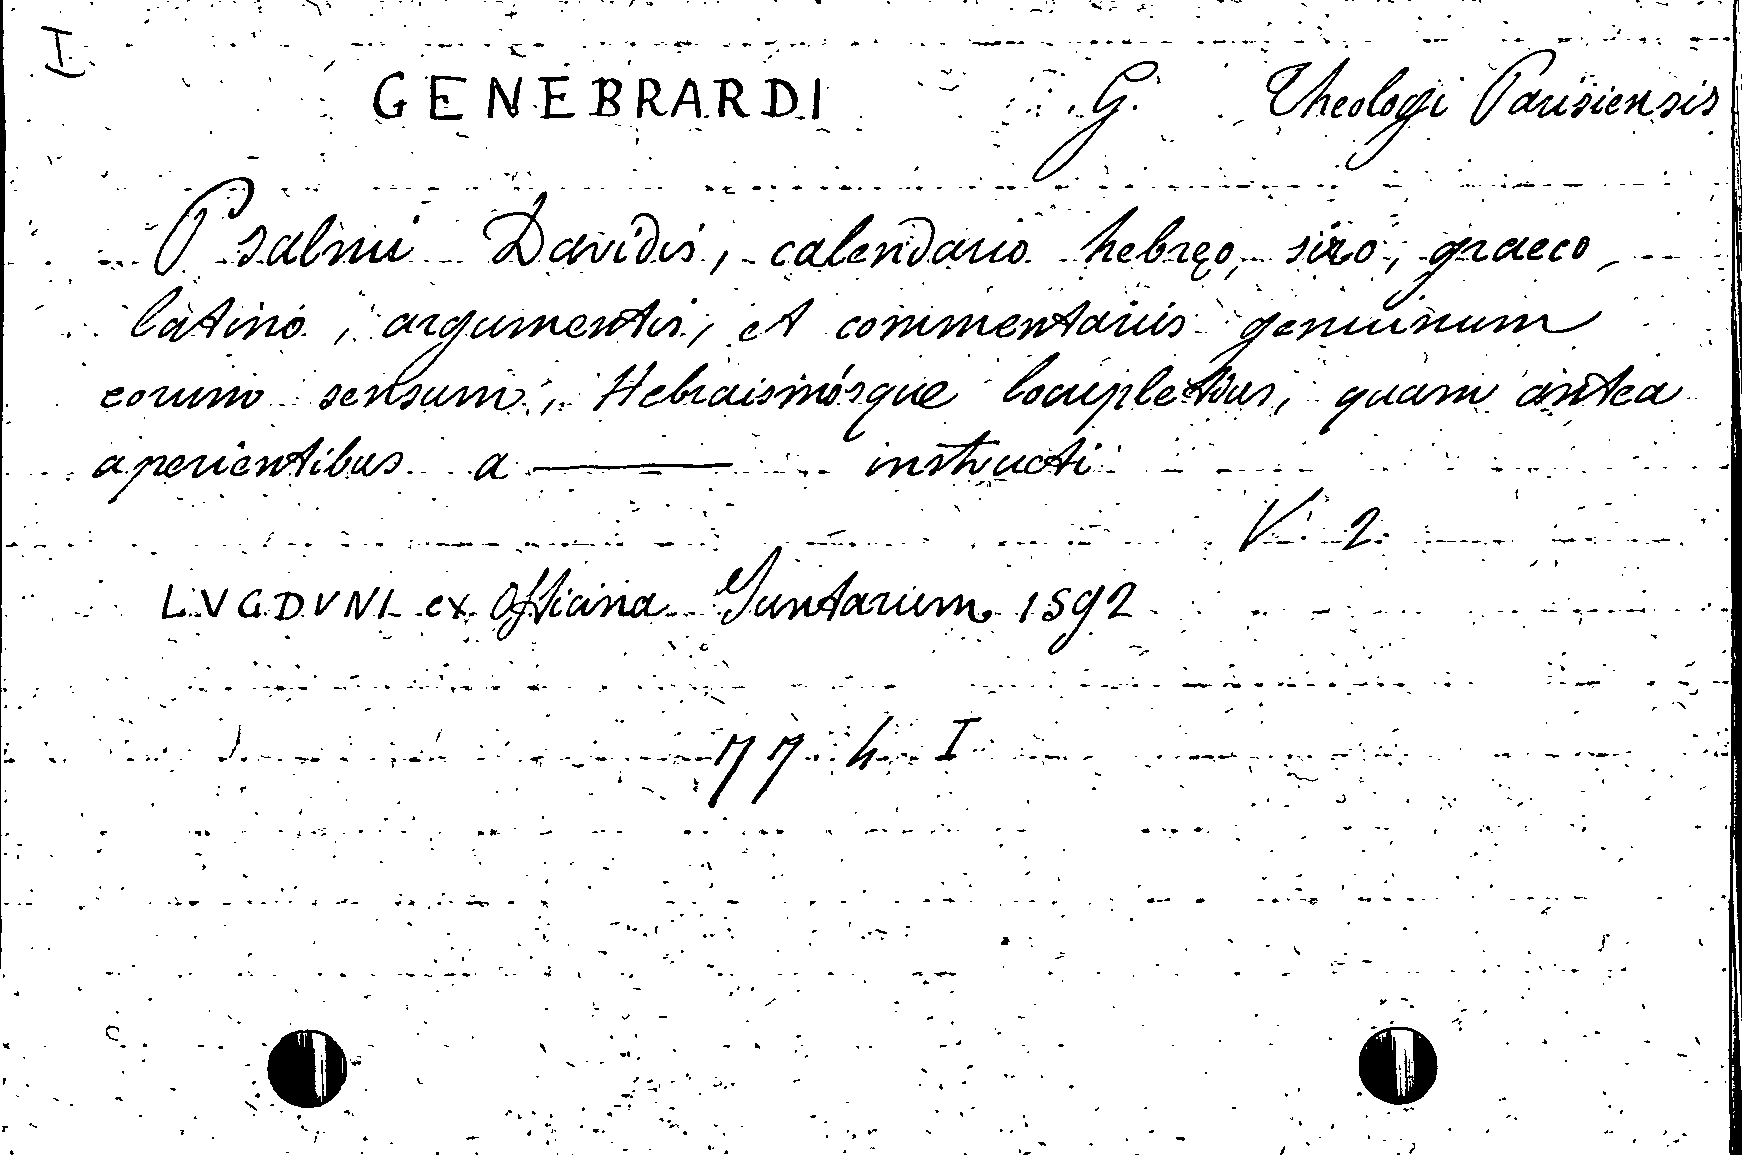 I
GENEBRARDI G. Theologi Parisiensis
Psalmi Davidis, calendario hebręo, siro, graeco,
latino, argumentis, et commentariis genuinum
eorum sensum, Hebraismósque locupletius, quam antea
aperientibus a ——— instructi
V. 2
LVGDVNI ex Officina Juntarum 1592
77 h I